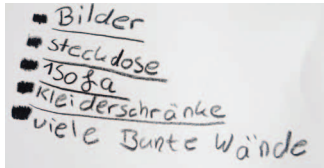 Bilder
steckdose
1 Sofa
Kleiderschränke
viele Bunte Wände